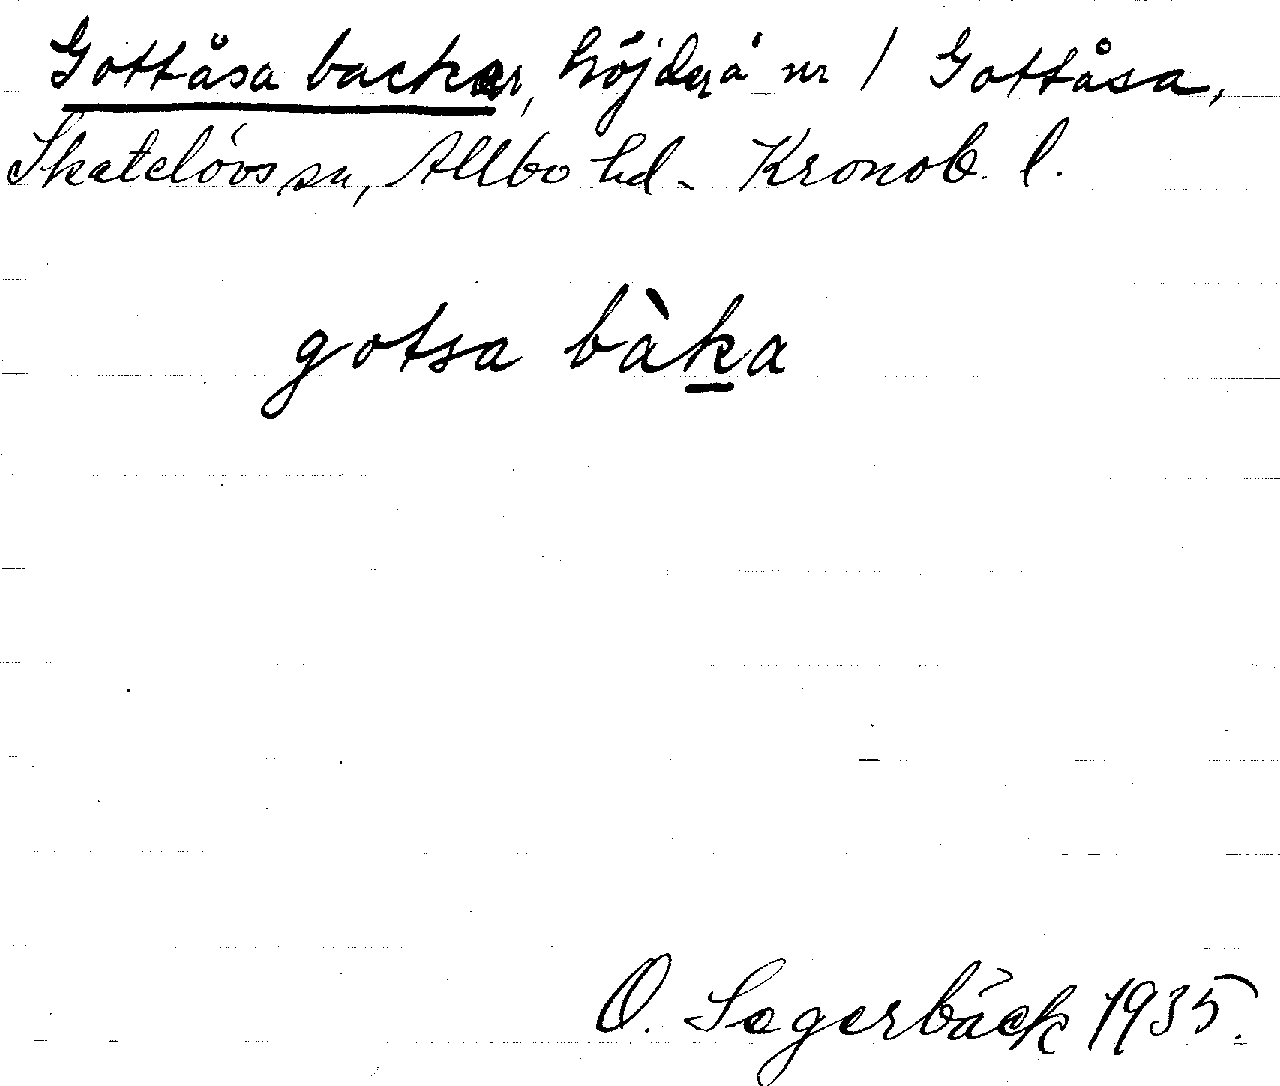 Gottåsa backar, höjder å nr 1 Gottåsa,
Skatelövs sn, Allbo hd. Kronob. l.
gotsa bàka
O. Segerbäck 1935.